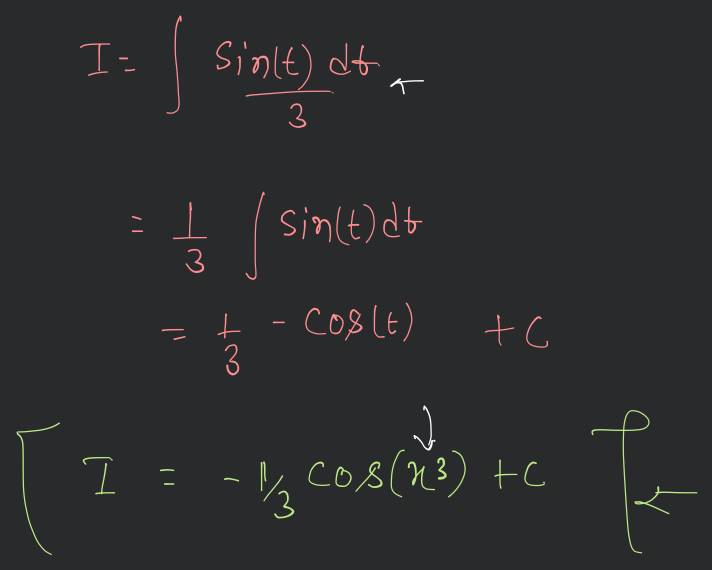 I = ∫ Sin(t) dt / 3
= 1/3 ∫ Sin(t) dt
= 1/3 - COS(t) + C
I = - 1/3 COS(x³) + C